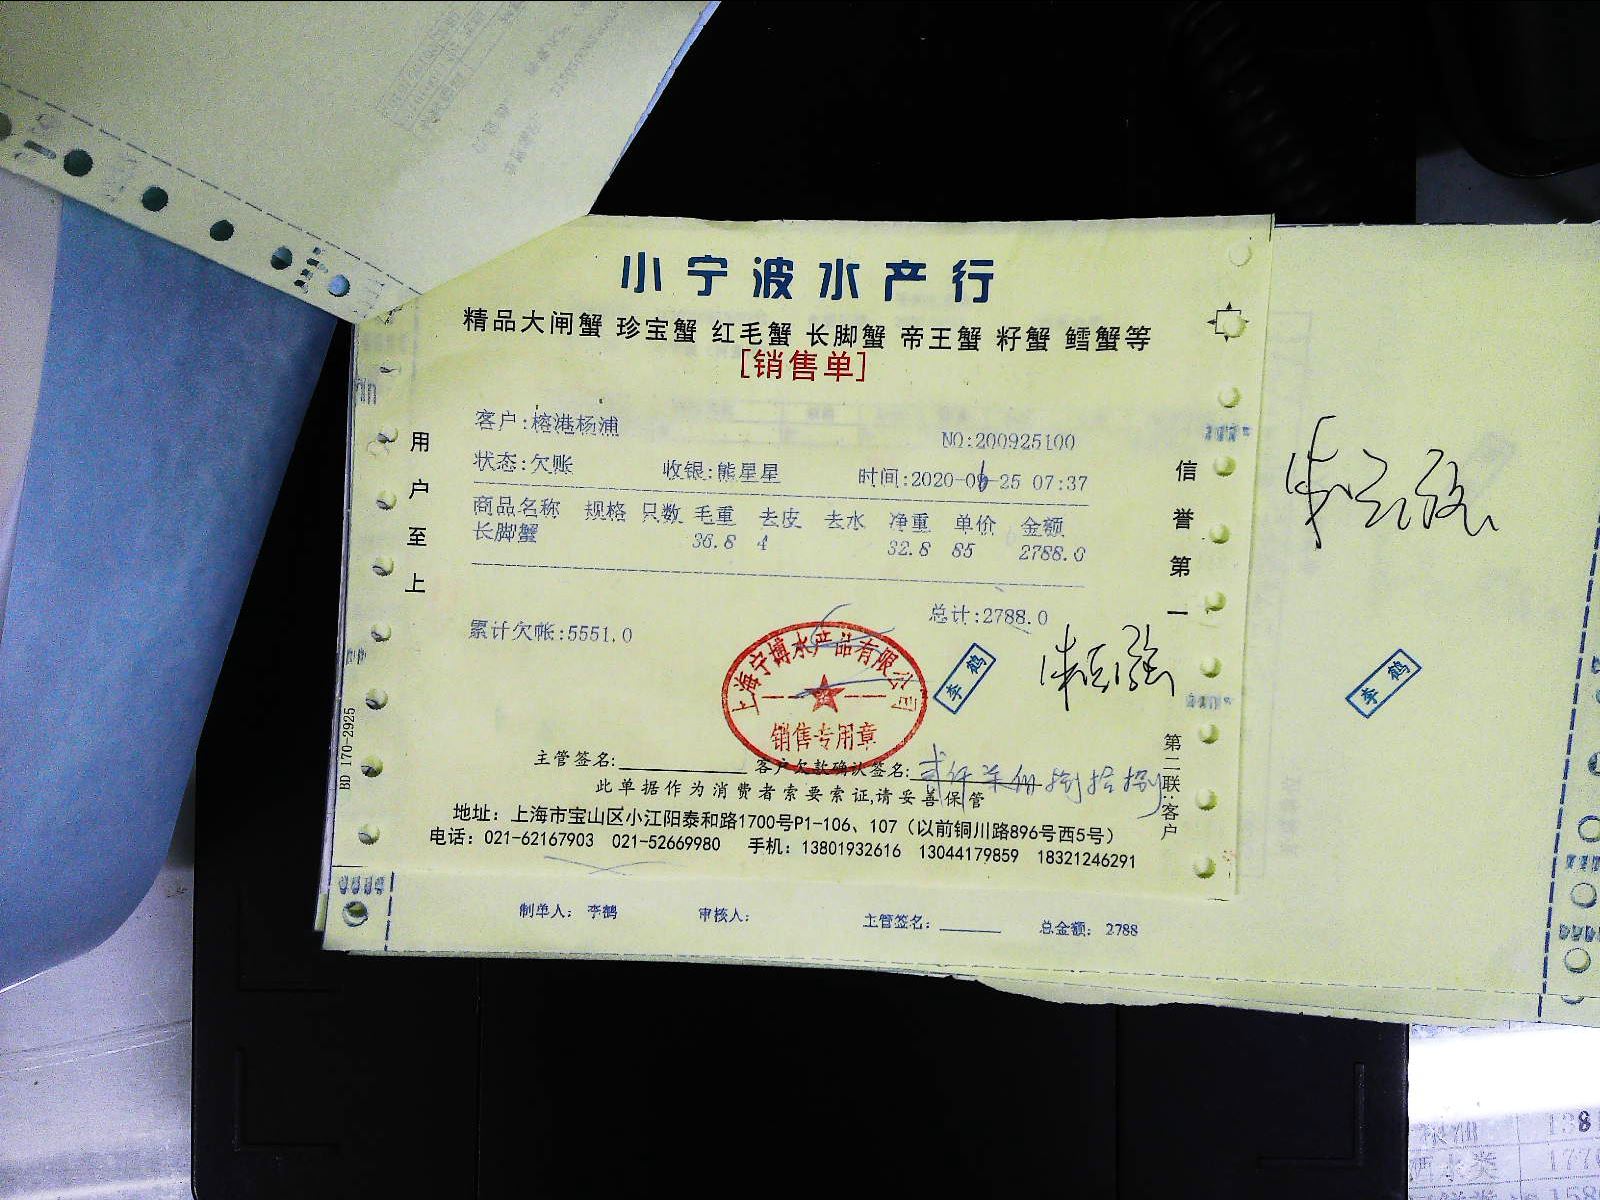 小宁波水产行
精品大闸蟹 珍宝蟹 红毛蟹 长脚蟹 帝王蟹 籽蟹 鳕蟹等
[销售单]
客户:榕港杨浦
NO:200925100
状态:欠账 收银:熊星星 时间:2020-06-25 07:37
商品名称 规格 只数 毛重 去皮 去水 净重 单价 金额
长脚蟹 36.8 4 32.8 85 2788.0
总计:2788.0
累计欠帐:5551.0
用户至上
信誉第一
上海宁博水产品有限公司
销售专用章
李鹤
李鹤
BD 170-2925
第二联:客户
主管签名: 客户欠款确认签名: 贰仟柒佰捌拾捌
此单据作为消费者索要索证,请妥善保管
地址: 上海市宝山区小江阳泰和路1700号P1-106、107（以前铜川路896号西5号）
电话: 021-62167903 021-52669980 手机: 13801932616 13044179859 18321246291
制单人: 李鹤 审核人: 主管签名: 总金额: 2788